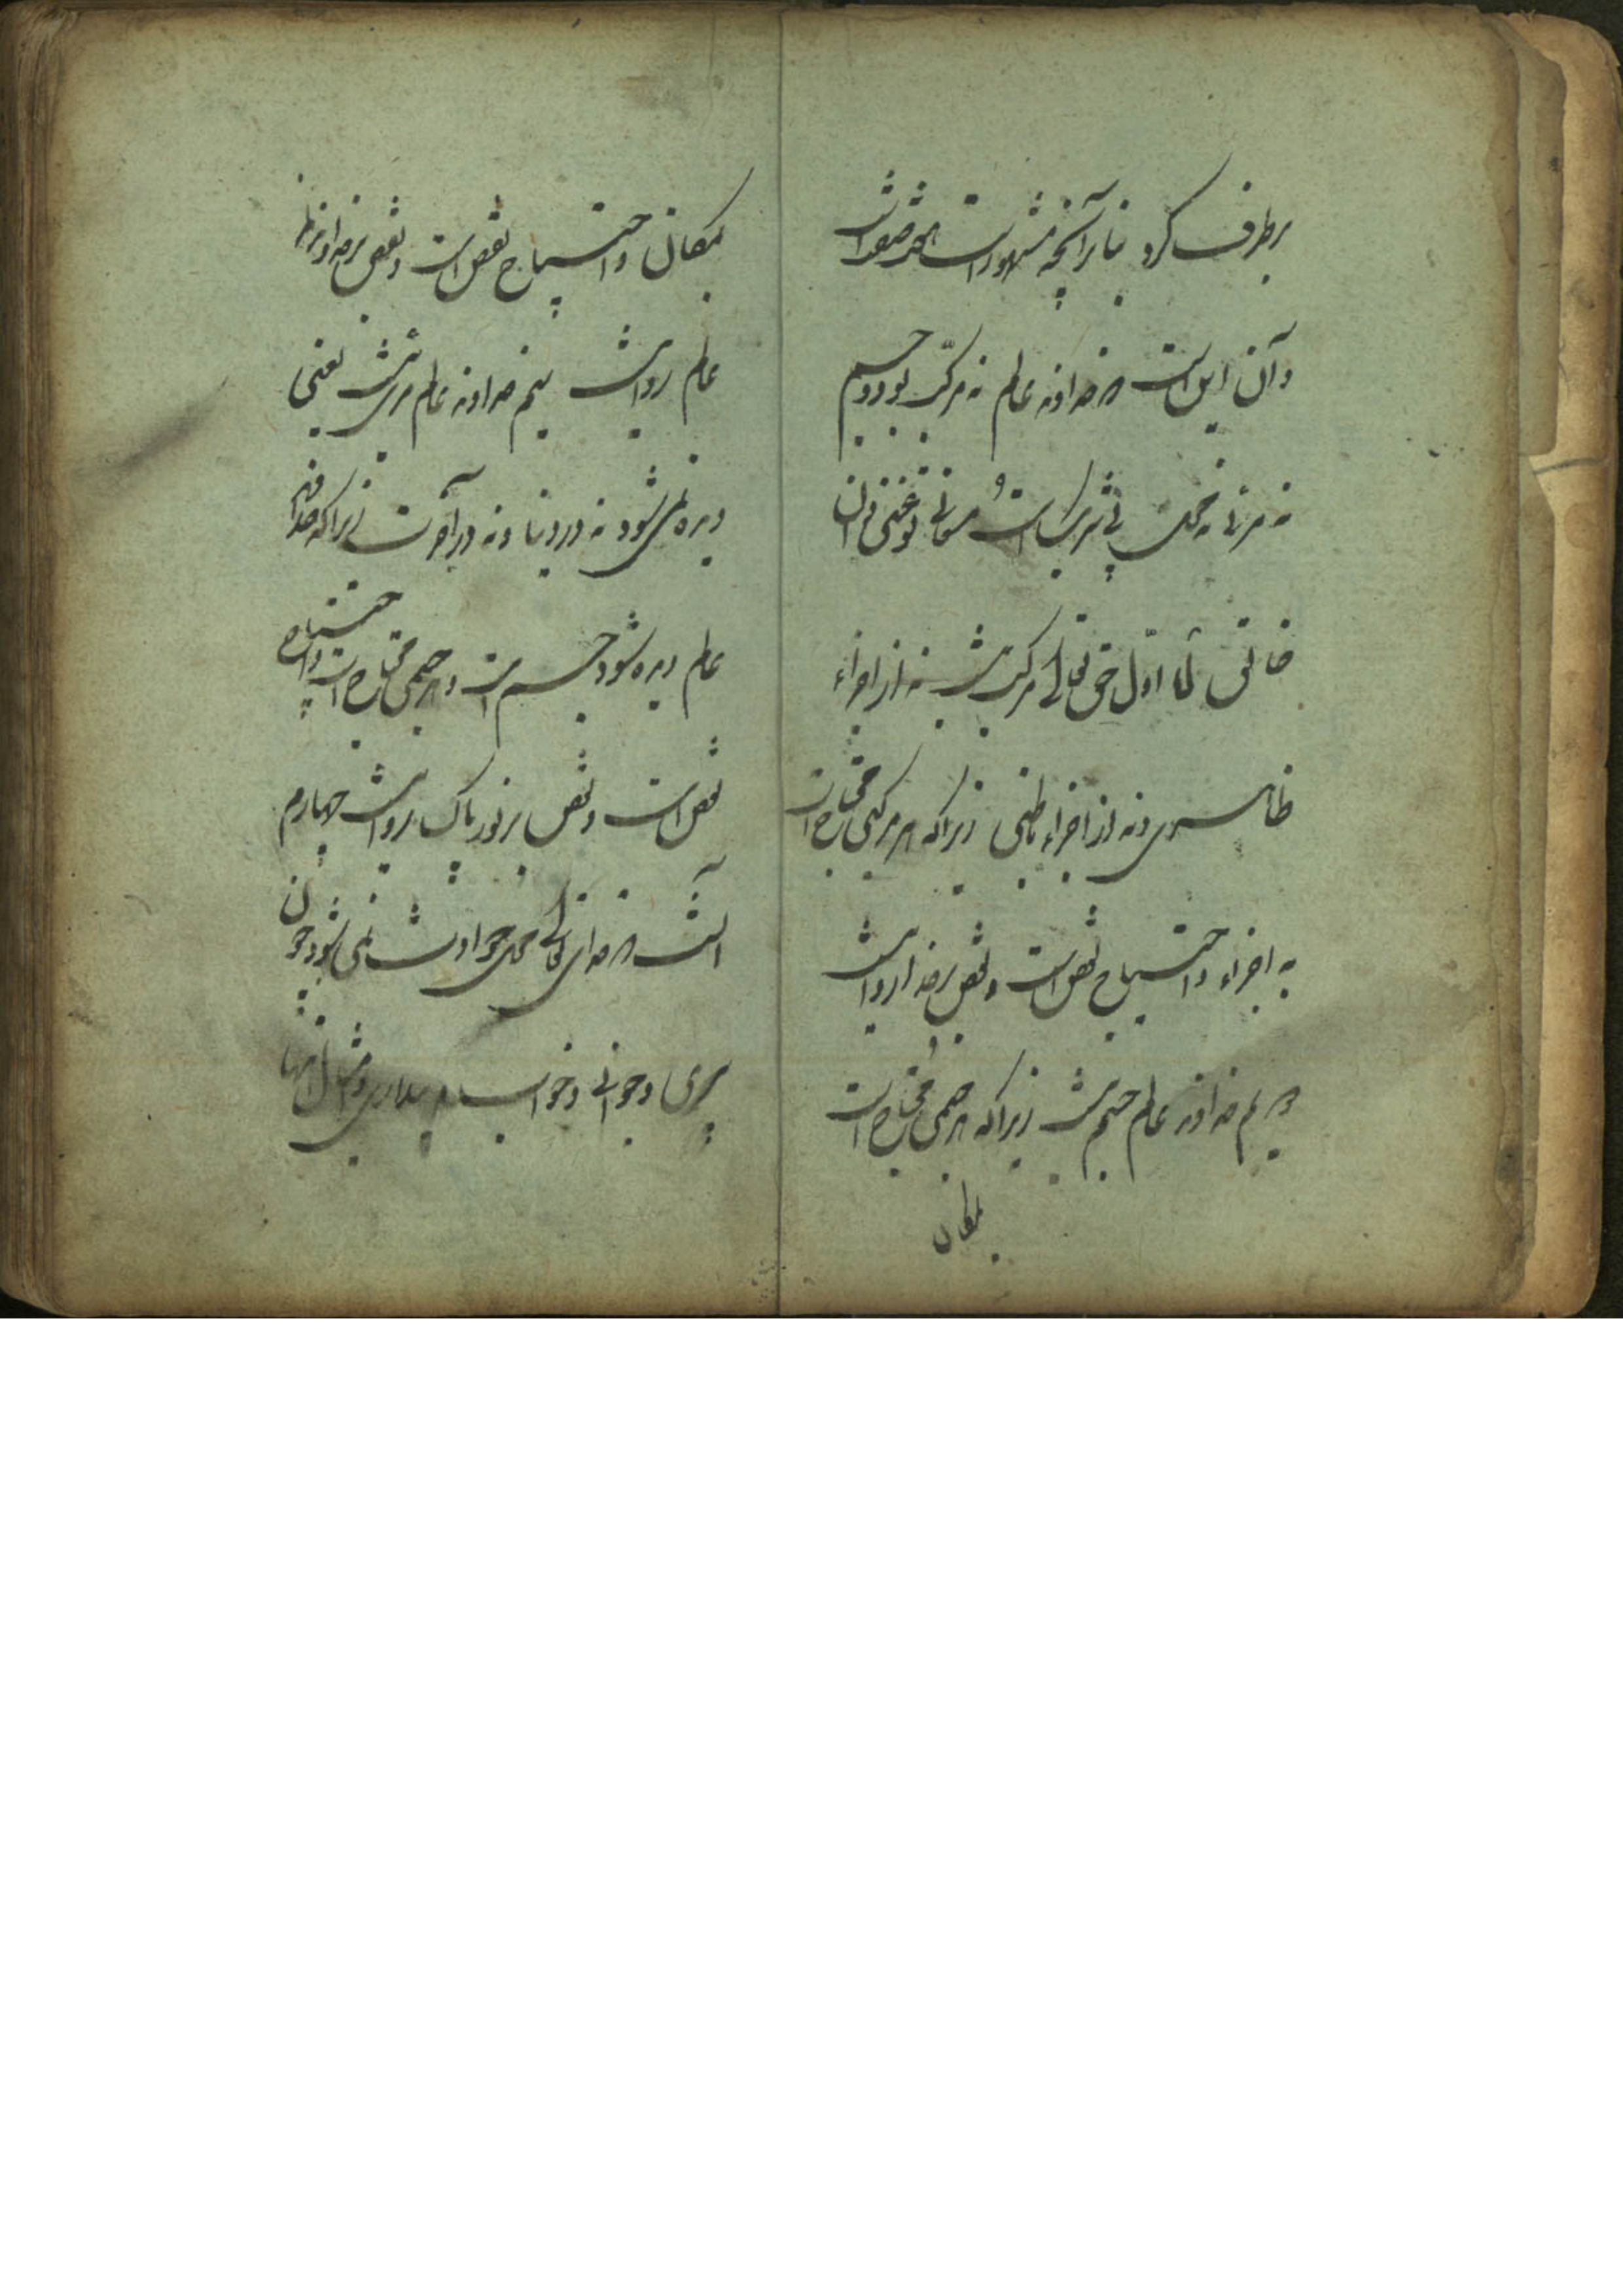 برطرف کرد بنا بر آنچه مشهور است هفت صفت است
و آن این است که خداوند عالم نه مرکب بود و جسم
نه مرئی نه محل بی شریک است و معانی تو غنی دان
خالق اما اول حق تعالی مرکب نیست نه از اجزاء
ظاهری و نه از اجزاء باطنی زیرا که هر مرکبی محتاج است
به اجزاء و احتیاج نقص است و نقص بر خدا روا نیست
دویم خداوند عالم جسم نیست زیرا که هر جسمی محتاج است
بمکان
بمکان و احتیاج نقص است و نقص بر خداوند
عالم روا نیست سیم خداوند عالم مرئی نیست یعنی
دیده نمی شود نه در دنیا و نه در آخرت زیرا که هرگاه خدا
عالم دیده شود جسم است و هر جسمی محتاج است و احتیاج
نقص است و نقص بر نور پاک روا نیست چهارم
آنست که خدای تعالی محل حوادث نمی شود چون
پیری و جوانی و خواب و بیداری و امثال اینها